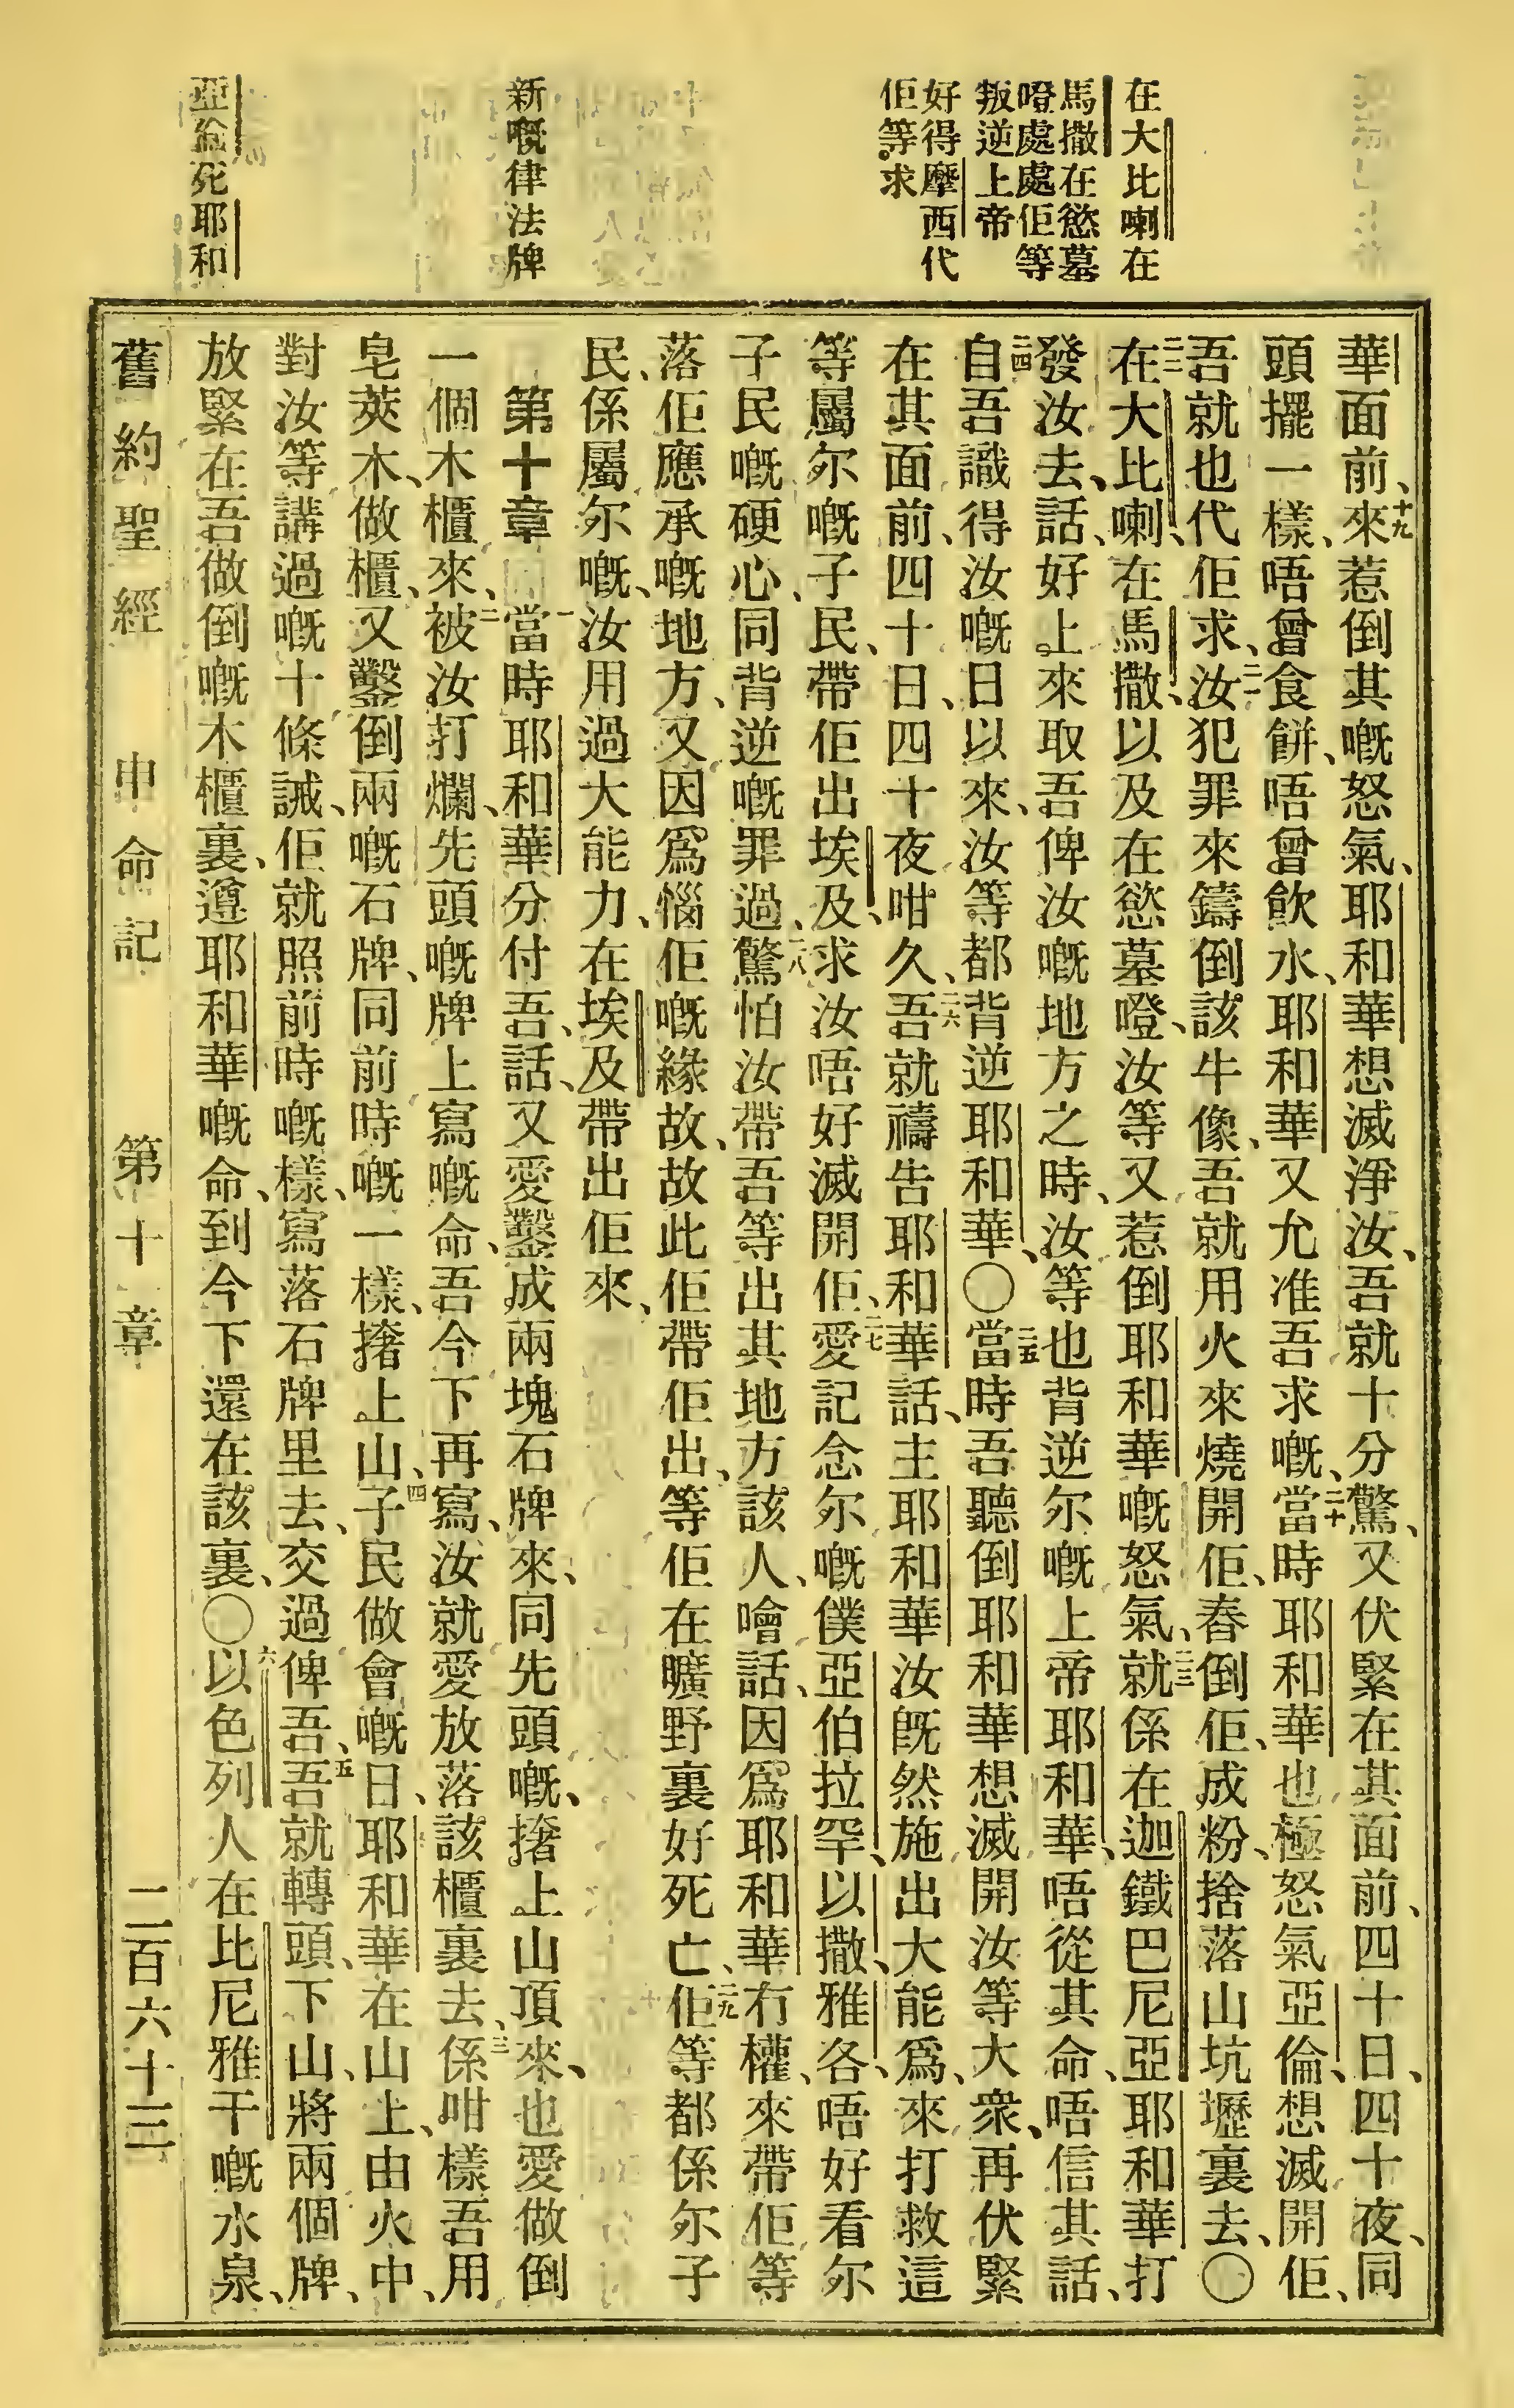 在大比喇在
馬撒在慾墓
嶝處處佢等
叛逆上帝
好得摩西代
佢等求
新嘅律法牌
亞倫死耶和
華面前、十九來惹倒其嘅怒氣、耶和華想滅淨汝、吾就十分驚、又伏緊在其面前、四十日、四十夜、同
頭擺一樣、唔曾食餅、唔曾飲水、耶和華又允准吾求嘅、二十當時耶和華也極怒氣亞倫、想滅開佢、
吾就也代佢求、二一汝犯罪來鑄倒該牛像、吾就用火來燒開佢、舂倒佢、成粉、捨落山坑壢裏去、〇
二二在大比喇、在馬撒、以及在慾墓嶝、汝等又惹倒耶和華嘅怒氣、二三就係在迦鐵巴尼亞、耶和華打
發汝去、話、好上來取吾俾汝嘅地方之時、汝等也背逆尔嘅上帝耶和華、唔從其命、唔信其話、
二四自吾識得汝嘅日以來、汝等都背逆耶和華、〇二五當時吾聽倒耶和華想滅開汝等大衆、再伏緊
在其面前、四十日、四十夜咁久、二六吾就禱告耶和華話、主耶和華汝旣然施出大能爲、來打救這
等屬尔嘅子民、帶佢出埃及、求汝唔好滅開佢、二七愛記念尔嘅僕亞伯拉罕、以撒、雅各、唔好看尔
子民嘅硬心、同背逆嘅罪過、二八驚怕汝帶吾等出其地方該人、噲話、因爲耶和華冇權、來帶佢等
落佢應承嘅地方、又因爲惱佢嘅緣故、故此佢帶佢出、等佢在曠野裏好死亡、二九佢等都係尔子
民、係屬尔嘅、汝用過大能力、在埃及帶出佢來、
第十章　一當時耶和華分付吾、話、又愛鑿成兩塊石牌來、同先頭嘅、撦上山頂來、也愛做倒
一個木櫃來、二被汝打爛、先頭嘅牌上寫嘅命、吾今下再寫、汝就愛放落該櫃裏去、三係咁樣吾用
皂莢木、做櫃、又鑿倒兩嘅石牌、同前時嘅一樣、撦上山、四子民做會嘅日、耶和華在山上、由火中、
對汝等講過嘅十條誡、佢就照前時嘅樣、寫落石牌里去、交過俾吾、五吾就轉頭、下山、將兩個牌、
放緊在吾做倒嘅木櫃裏、遵耶和華嘅命、到今下還在該裏、〇六以色列人在比尼雅干嘅水泉、
舊約聖經　申命記　第十章　二百六十三